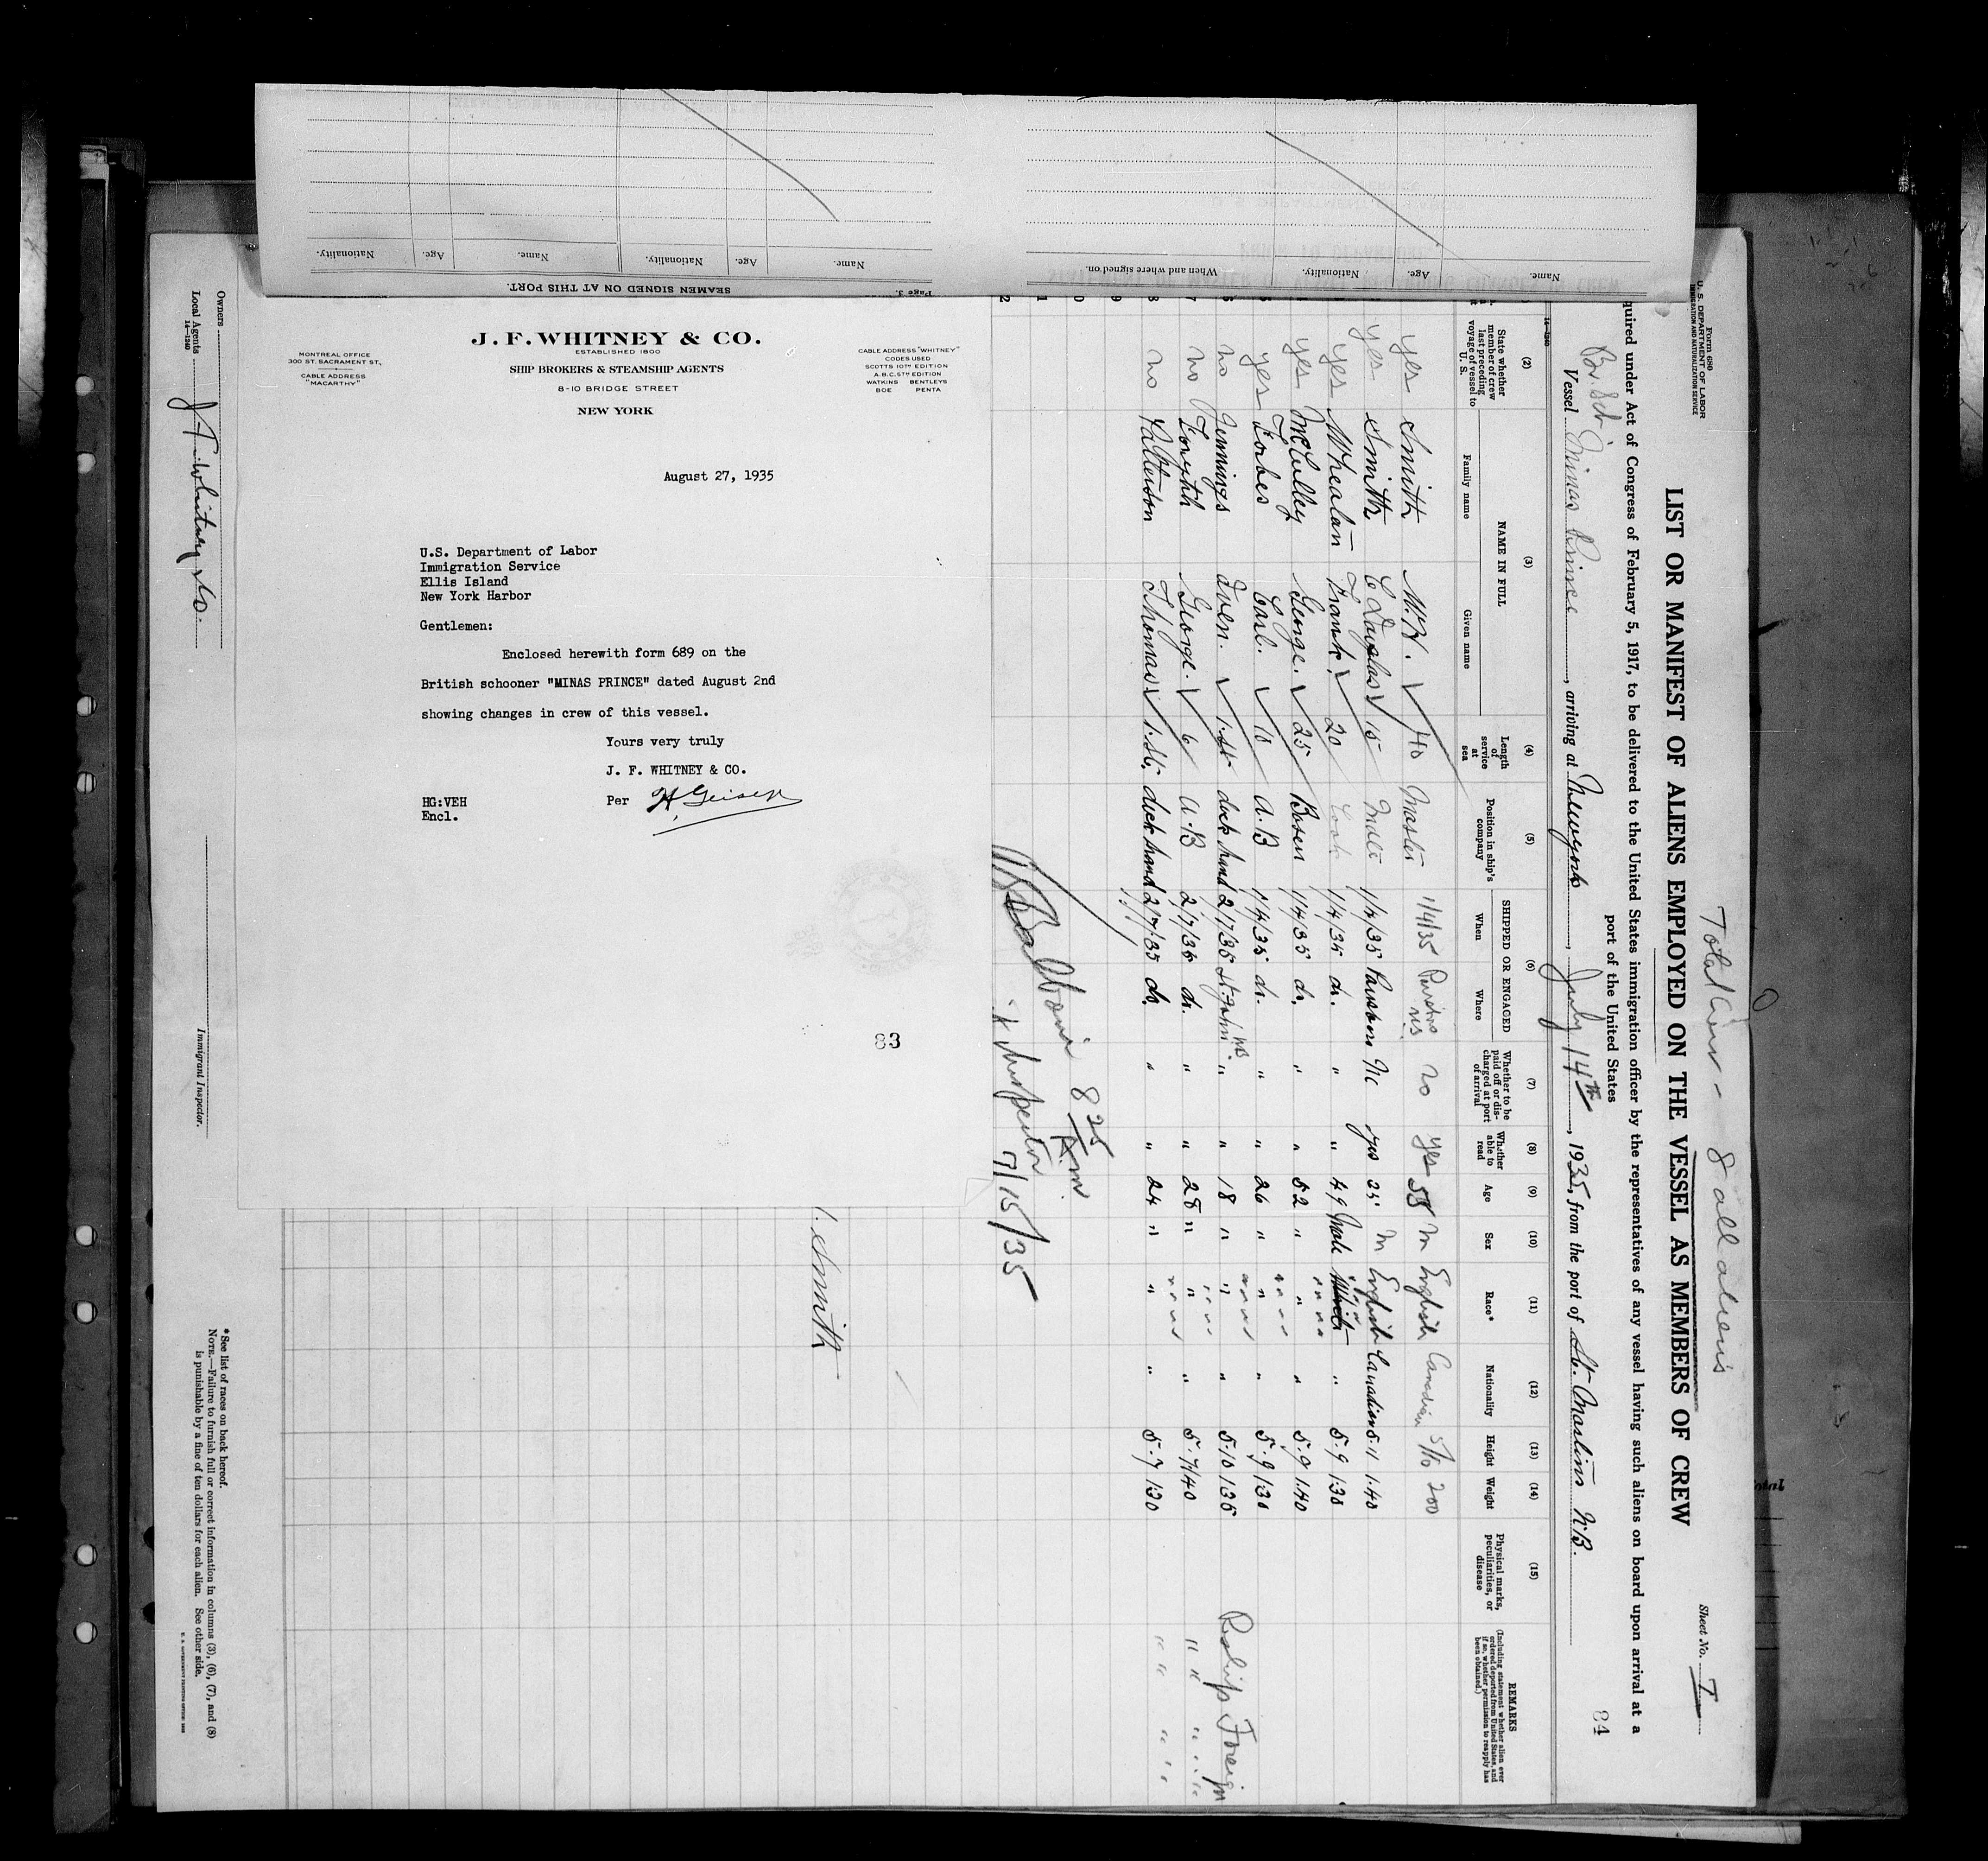 Nationality. Age. Name. Nationality. Age. Name.
SEAMEN SIGNED ON AT THIS PORT.
Page 3.
When and where signed on. Nationality. Age. Name.
J. F. WHITNEY & CO.
ESTABLISHED 1800
SHIP BROKERS & STEAMSHIP AGENTS
8-10 BRIDGE STREET
NEW YORK
MONTREAL OFFICE
300 ST. SACRAMENT ST.,
CABLE ADDRESS
"MACARTHY"
CABLE ADDRESS "WHITNEY"
CODES USED
SCOTTS 10TH EDITION
A.B.C. 5TH EDITION
WATKINS BENTLEYS
BOE PENTA
August 27, 1935
U.S. Department of Labor
Immigration Service
Ellis Island
New York Harbor
Gentlemen:
Enclosed herewith form 689 on the
British schooner "MINAS PRINCE" dated August 2nd
showing changes in crew of this vessel.
Yours very truly
J. F. WHITNEY & CO.
HG:VEH Per H. Geiser
Encl.
83
Total Crew - 8 all aliens
Form 680
U. S. DEPARTMENT OF LABOR
IMMIGRATION AND NATURALIZATION SERVICE
Sheet No. 1
LIST OR MANIFEST OF ALIENS EMPLOYED ON THE VESSEL AS MEMBERS OF CREW
quired under Act of Congress of February 5, 1917, to be delivered to the United States immigration officer by the representatives of any vessel having such aliens on board upon arrival at a
port of the United States
84
Br. Sch
Vessel Minas Prince, arriving at Newyork, July 14th, 1935, from the port of St. Martins N.B.
14-1240
(2) (3) (4) (5) (6) (7) (8) (9) (10) (11) (12) (13) (14) (15)
State whether member of crew last preceding voyage of vessel to U. S.
NAME IN FULL
Family name Given name
Length of service at sea
Position in ship's company
SHIPPED OR ENGAGED
When Where
Whether to be paid off or discharged at port of arrival
Whether able to read
Age
Sex
Race*
Nationality
Height
Weight
Physical marks, peculiarities, or disease
REMARKS
(Including statement whether alien ever ordered deported from United States, and if so, whether permission to reapply has been obtained.)
yes Smith M.H. 40 Master 1/4/35 no yes 55 M English Canadian 5/10 200
yes Smith C Douglas 15 Mate 1/4/35 Parrsboro No yes 25 M English Canadian 5.11 1.40
yes Whealan Frank 20 Cook 1/4/35 do. " " 49 Male " 5.9 130
yes McCulley George. 25 Bosen 1/4/35 do. " " 52 " " " 5.9 1.40
yes Forbes Carl. 10 A.B 1/4/35 do. " " 26 " " " 5.9 130
no Jennings Iven. 1.st deck hand 2/7/35 St. John NB " " 18 " " " 5.10 135 Reship Foreign
no Forsyth George. 6 A.B 2/7/35 do. " " 28 " " " 5.7 140 " " " "
no Patterson Thomas 1.st. deck hand 2/7/35 do. " " 24 " " " 5.7 130 " " " "
8 25 Am
Inspector 7/15/35
Smith
Owners
Local Agents J. F. Whitney & Co.
14-1240
Immigrant Inspector.
*See list of races on back hereof.
NOTE.—Failure to furnish full or correct information in columns (3), (6), (7), and (8)
is punishable by a fine of ten dollars for each alien. See other side.